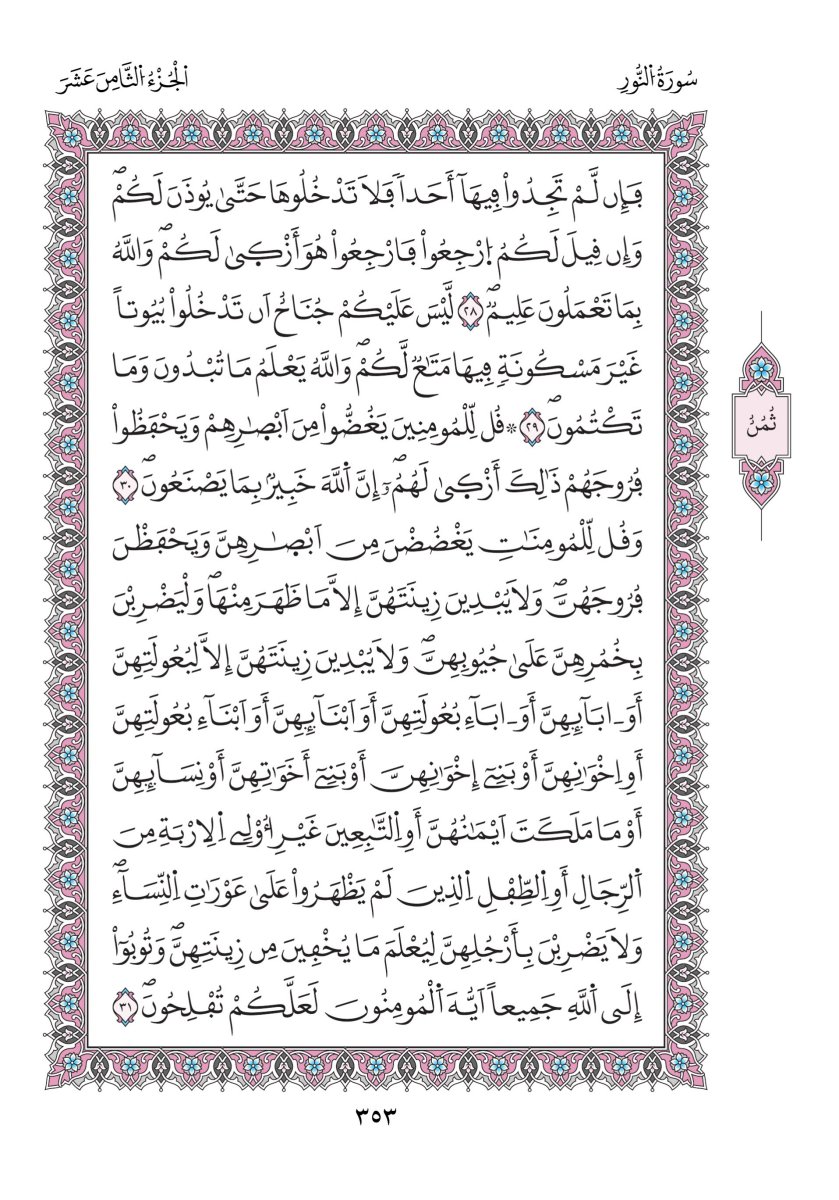 سُورَةُ اُ۬لنُّورِ
اَ۬لْجُزْءُ اُ۬لثَّامِنَ عَشَرَ
فَإِن لَّمْ تَجِدُواْ فِيهَآ أَحَداٗ فَلَا تَدْخُلُوهَا حَتَّىٰ يُوذَنَ لَكُمْۖ
وَإِن قِيلَ لَكُمُ اُ۪رْجِعُواْ فَارْجِعُواْ هُوَ أَزْكۭيٰ لَكُمْۖ وَاللَّهُ
بِمَا تَعْمَلُونَ عَلِيمٞۖ ٢٨ لَّيْسَ عَلَيْكُمْ جُنَاحٌ اَن تَدْخُلُواْ بُيُوتاً
غَيْرَ مَسْكُونَةٖ فِيهَا مَتَٰعٞ لَّكُمْۖ وَاللَّهُ يَعْلَمُ مَا تُبْدُونَ وَمَا
تَكْتُمُونَۖ ٢٩ ۞ قُل لِّلْمُومِنِينَ يَغُضُّواْ مِنَ اَبْصٰ۪رِهِمْ وَيَحْفَظُواْ
فُرُوجَهُمْ ذَٰلِكَ أَزْكۭيٰ لَهُمُۥٓۖ إِنَّ اَ۬للَّهَ خَبِيرُۢ بِمَا يَصْنَعُونَۖ ٣٠
وَقُل لِّلْمُومِنَٰتِ يَغْضُضْنَ مِنَ اَبْصٰ۪رِهِنَّ وَيَحْفَظْنَ
فُرُوجَهُنَّۖ وَلَا يُبْدِينَ زِينَتَهُنَّ إِلَّا مَا ظَهَرَ مِنْهَاۖ وَلْيَضْرِبْنَ
بِخُمُرِهِنَّ عَلَىٰ جُيُوبِهِنَّۖ وَلَا يُبْدِينَ زِينَتَهُنَّ إِلَّا لِبُعُولَتِهِنَّ
أَوَ اٰبَآئِهِنَّ أَوَ اٰبَآءِ بُعُولَتِهِنَّ أَوَ اَبْنَآئِهِنَّ أَوَ اَبْنَآءِ بُعُولَتِهِنَّ
أَوِ اِخْوَٰنِهِنَّ أَوْ بَنِےٓ إِخْوَٰنِهِنَّ أَوْ بَنِےٓ أَخَوَٰتِهِنَّ أَوْ نِسَآئِهِنَّ
أَوْ مَا مَلَكَتَ اَيْمَٰنُهُنَّ أَوِ اِ۬لتَّٰبِعِينَ غَيْرِ أُوْلِے اِ۬لِارْبَةِ مِنَ
اَ۬لرِّجَالِ أَوِ اِ۬لطِّفْلِ اِ۬لذِينَ لَمْ يَظْهَرُواْ عَلَىٰ عَوْرَٰتِ اِ۬لنِّسَآءِۖ
وَلَا يَضْرِبْنَ بِأَرْجُلِهِنَّ لِيُعْلَمَ مَا يُخْفِينَ مِن زِينَتِهِنَّۖ وَتُوبُوٓاْ
إِلَى اَ۬للَّهِ جَمِيعاً اَيُّهَ اَ۬لْمُومِنُونَ لَعَلَّكُمْ تُفْلِحُونَۖ ٣١
ثُمُنُ
٣٥٣